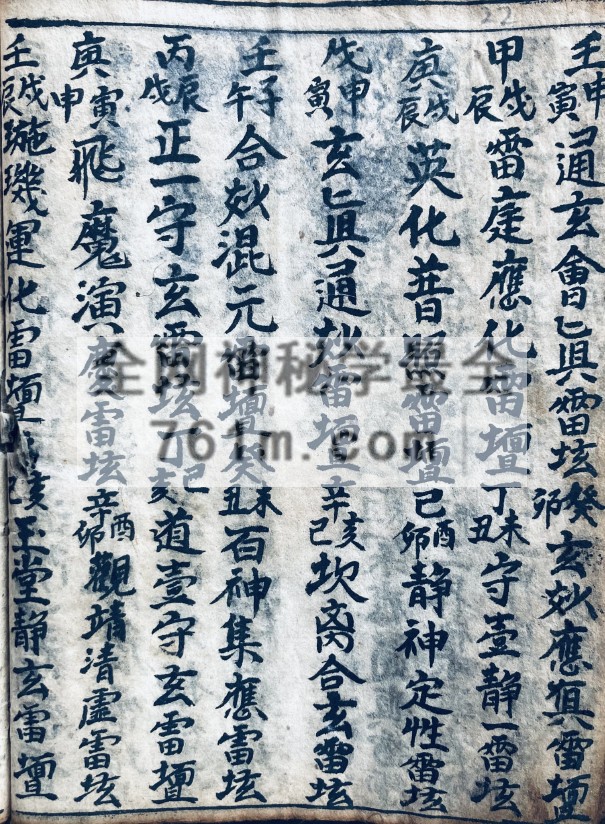 22
壬申寅通玄會真雷坛癸卯玄妙應真雷壇
甲戌辰雷霆應化雷壇丁未丑守壹静一雷坛
庚戌辰英化普照雷壇己酉卯静神定性雷坛
戊申寅玄真通妙雷壇辛亥巳坎离合玄雷坛
壬子午合妙混元雷壇癸未丑石神集應雷坛
丙辰戌正一守玄雷坛丁巳亥道壹守玄雷壇
庚寅申飛魔演慶雷坛辛酉卯觀靖清虛雷坛
壬戌辰璇璣運化雷壇亥玉堂静玄雷壇
全网神秘学最全
761m.com